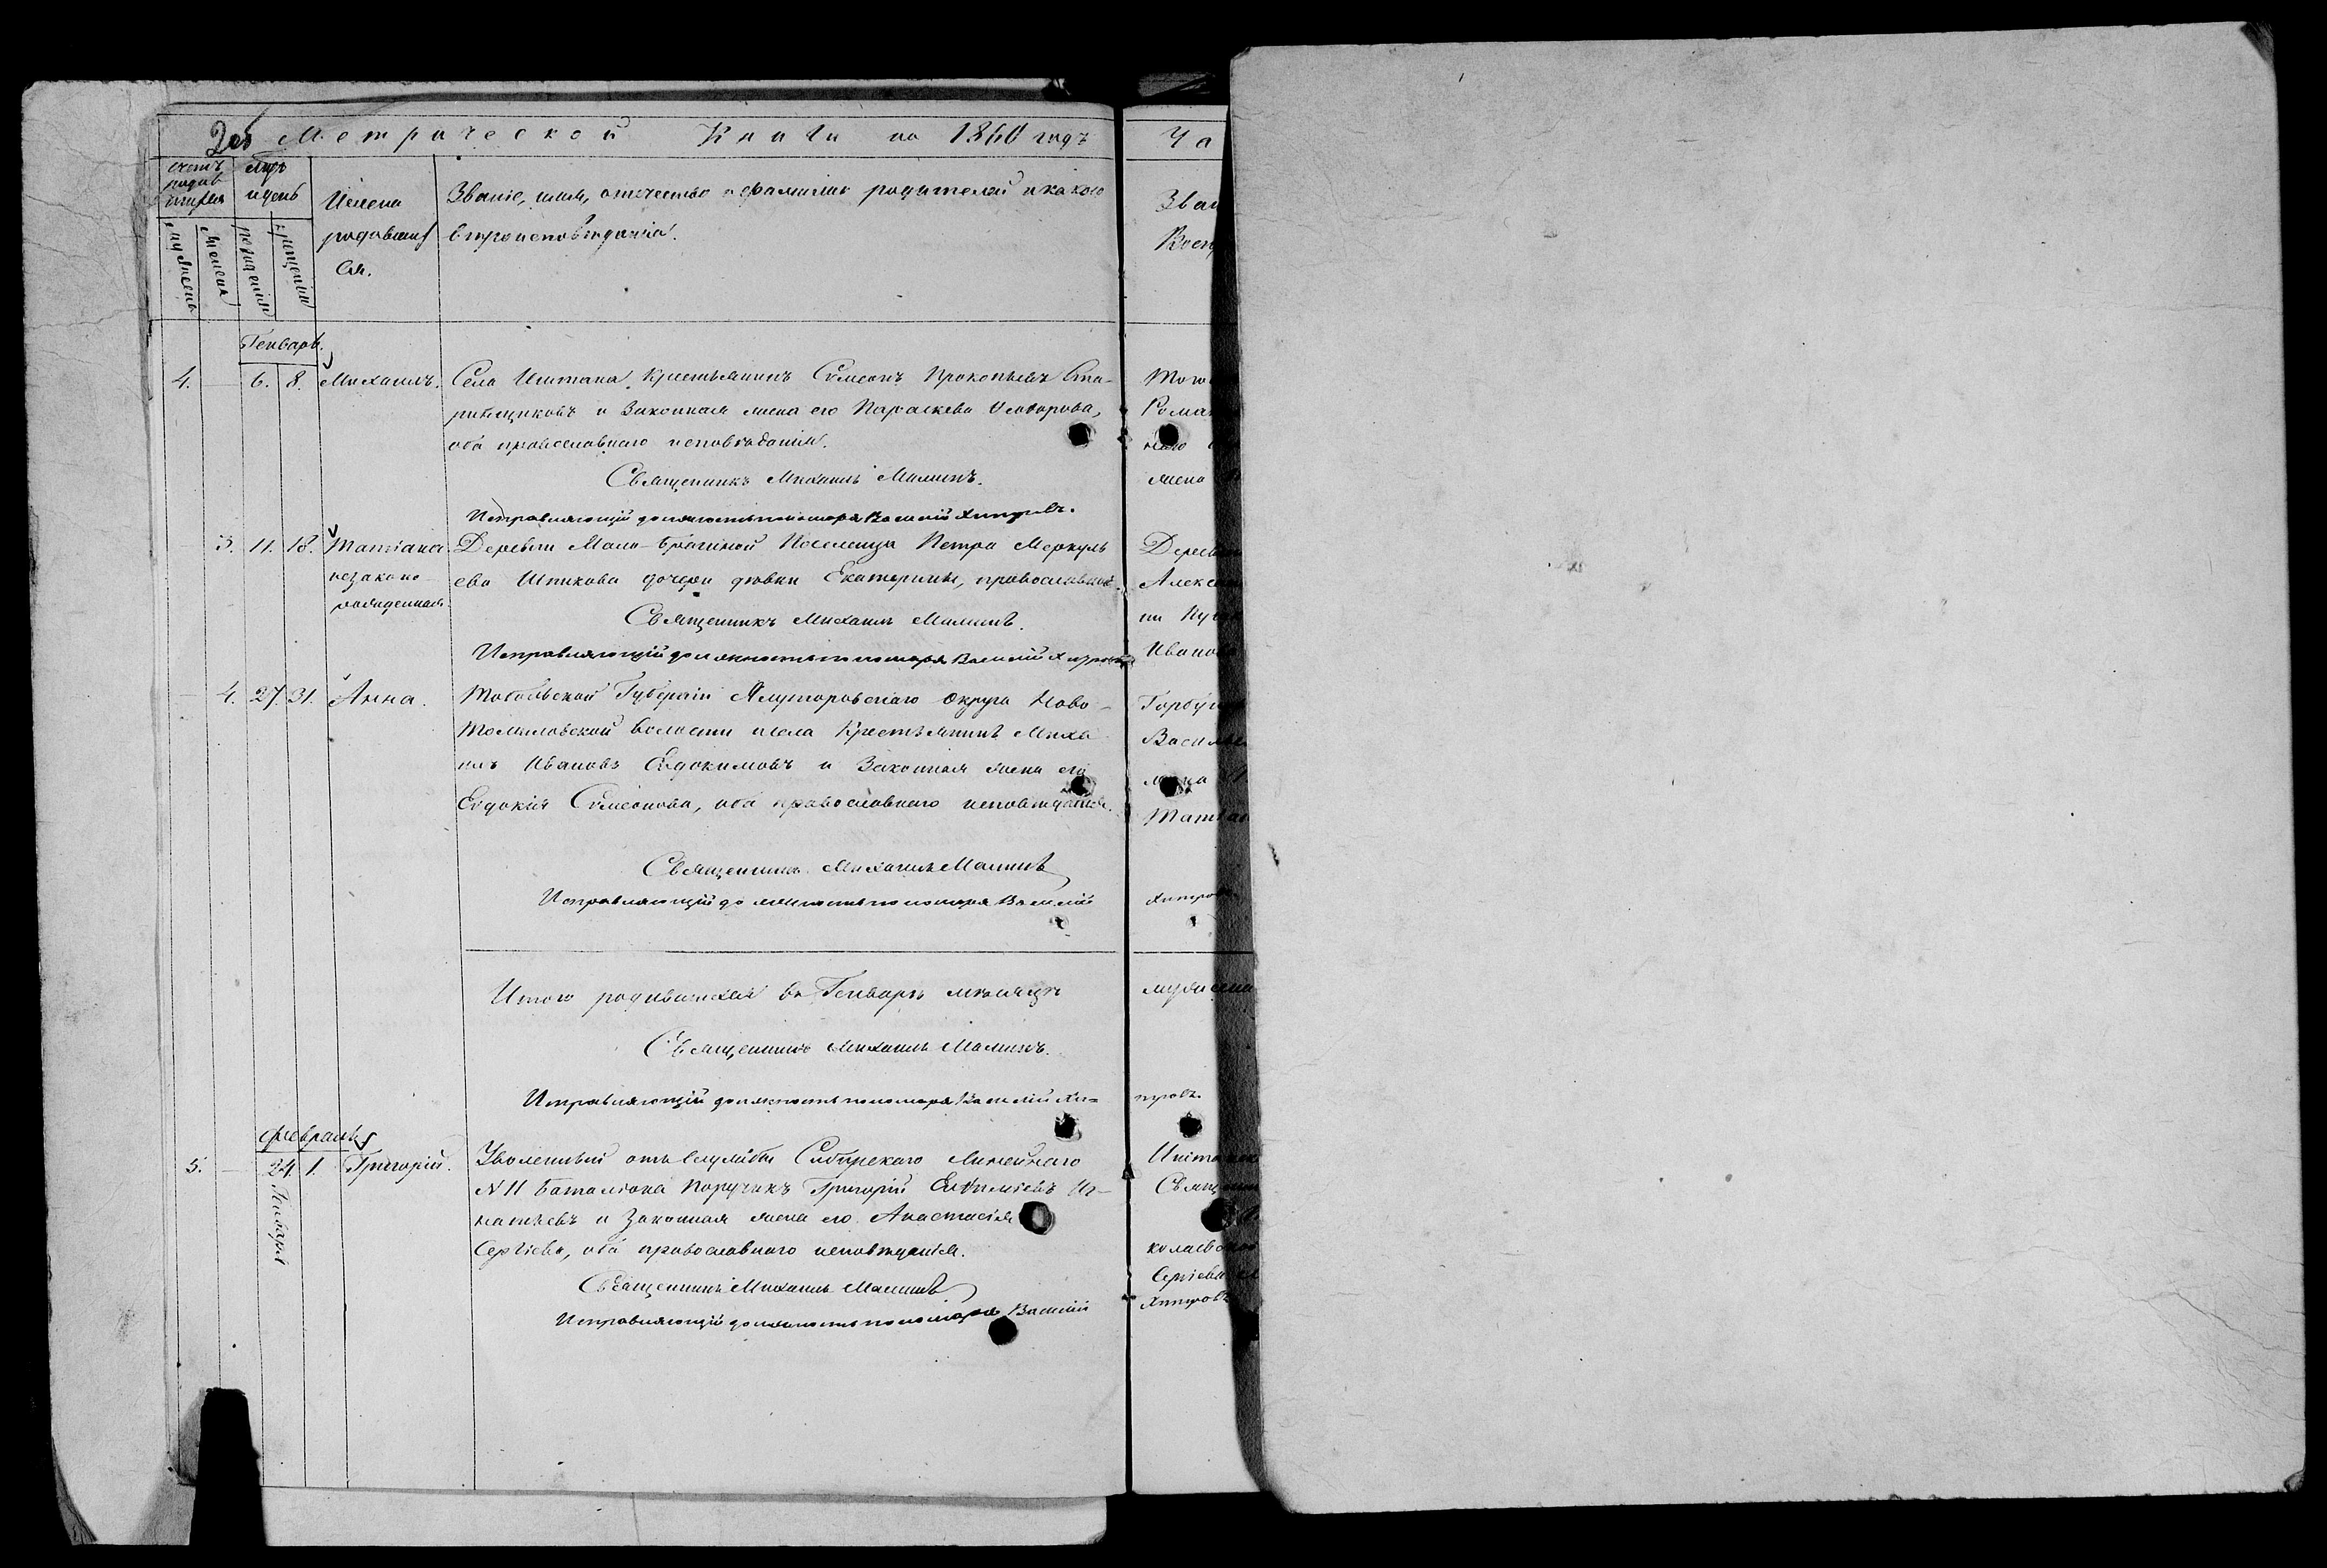 2об Метрической Книги на 1860 годъ
счетъ родив шихся
мужеска
женска
мцъ и день
рожденія
крещенія
Имена родившихся.
Званіе, имя, отчество и фамилія родителей и какого вѣроисповѣданія.
Генварь.
4. — 6. 8. Михаилъ. Села Иштана, крестьянинъ Симеонъ Прокопьевъ
и законная жена его Параскева Ѳеодорова,
оба православнаго исповѣданія.
Священникъ Михаилъ Малинъ.
Исправляющій должность пономаря Василій Хитровъ.
— 3. 11. 18. Татіана Деревни Мало-Брагиной Поселенца Петра Меркуль
незаконо ева Шпикова дочери дѣвки Екатерины, православной.
рожденная.
Священникъ Михаилъ Малинъ.
Исправляющій должность пономаря Василій Хитровъ
— 4. 27. 31. Анна. Тобольской Губерніи Ялуторовскаго округа Ново-
Томиловской волости и села Крестьянинъ Миха
илъ Ивановъ Евдокимовъ и законная жена его
Евдокія Симеонова, оба православнаго исповѣданія.
Священникъ Михаилъ Малинъ
Исправляющій должность пономаря Василій
Итого родившихся въ Генварѣ мѣсяцѣ
Священникъ Михаилъ Малинъ.
Исправляющій должность пономаря Василій Хи=
Февраль
5. — 24 1. Григорій. Уволенный отъ службы Сибирскаго Линейнаго
Генваря
N 11 баталіона Поручикъ Григорій Евѳиміевъ Иг-
натьевъ и законная жена его Анастасія
Сергіева, оба православнаго исповѣданія.
Священникъ Михаилъ Малинъ
Исправляющій должность пономаря Василій
Ча
Зван
Восп
Того
Рома
жена
Деревни
Алекс
Иванов
Горбун
Василь
Хитровъ
мужеска
тровъ.
Сергіева
Хитровъ